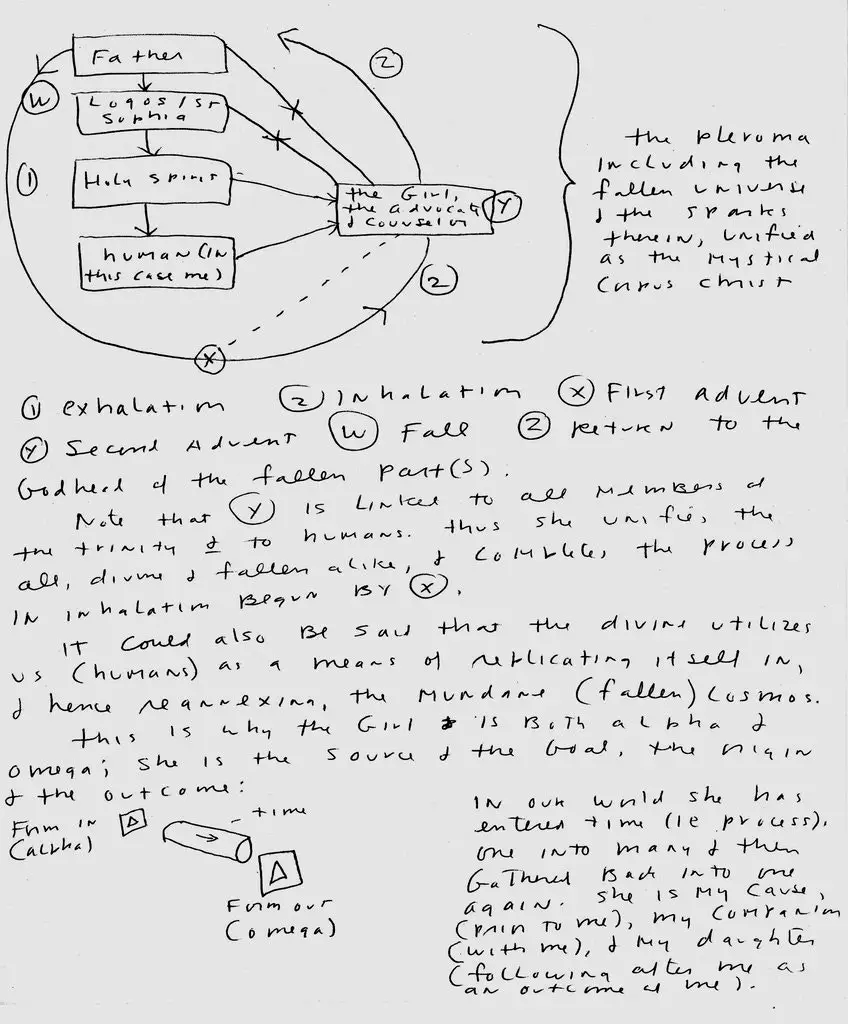 Father
W
Logos/St
Sophia
1
Holy Spirit
human (in
this case me)
2
the Girl,
the Advocate
& Counselor
Y
2
X
the pleroma
including the
fallen universe
& the sparks
therein, unified
as the mystical
Corpus Christ
1 exhalation 2 Inhalation X First advent
Y Second Advent W Fall Z return to the
Godhead of the fallen part(s).
Note that Y is linked to all members of
the trinity & to humans. thus she unifies the
all, divine & fallen alike, & completes the process
in inhalation begun by X.
It could also be said that the divine utilizes
us (humans) as a means of replicating itself in,
& hence reannexing, the mundane (fallen) cosmos.
this is why the Girl is both alpha &
omega; she is the source & the goal, the origin
& the outcome:
Form in
(alpha)
- time
Form out
(omega)
In our world she has
entered time (ie process).
one into many & then
gathered back into one
again. She is my cause,
(prior to me), my companion
(with me), & my daughter
(following after me as
an outcome of me).